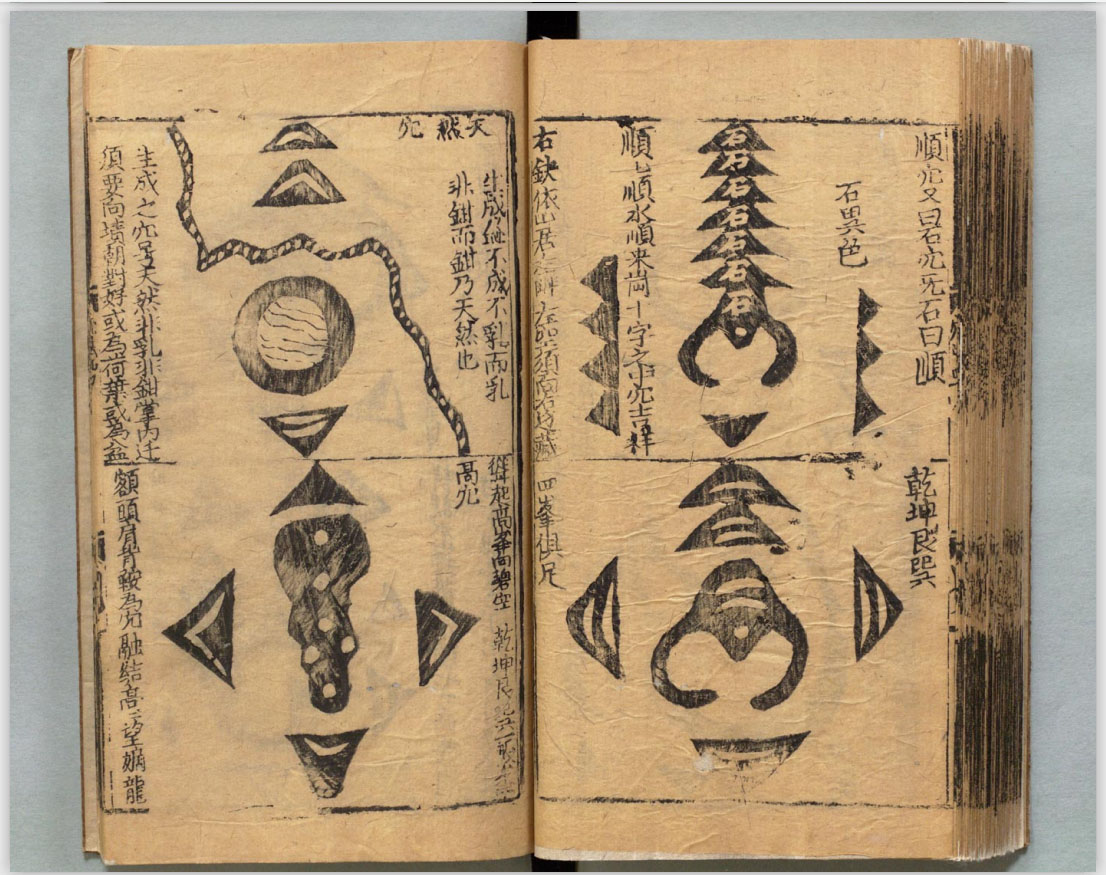 順穴又曰石穴旡石曰順
石異色
石
石
石
石
石
石
石
順七順水順來崗十字之中穴吉祥
乾坤艮巽
右鈌依山君
四峯俱足
天然穴
生成無不成不乳而乳
非鉗而鉗乃天然也
生成之穴号天然非乳非鉗掌內迁
須要向墳朝對好或為荷葉或為盆
聳起高峯向碧空
乾坤艮巽
高穴
額頭肩背鞍為穴融結高高望嫡龍